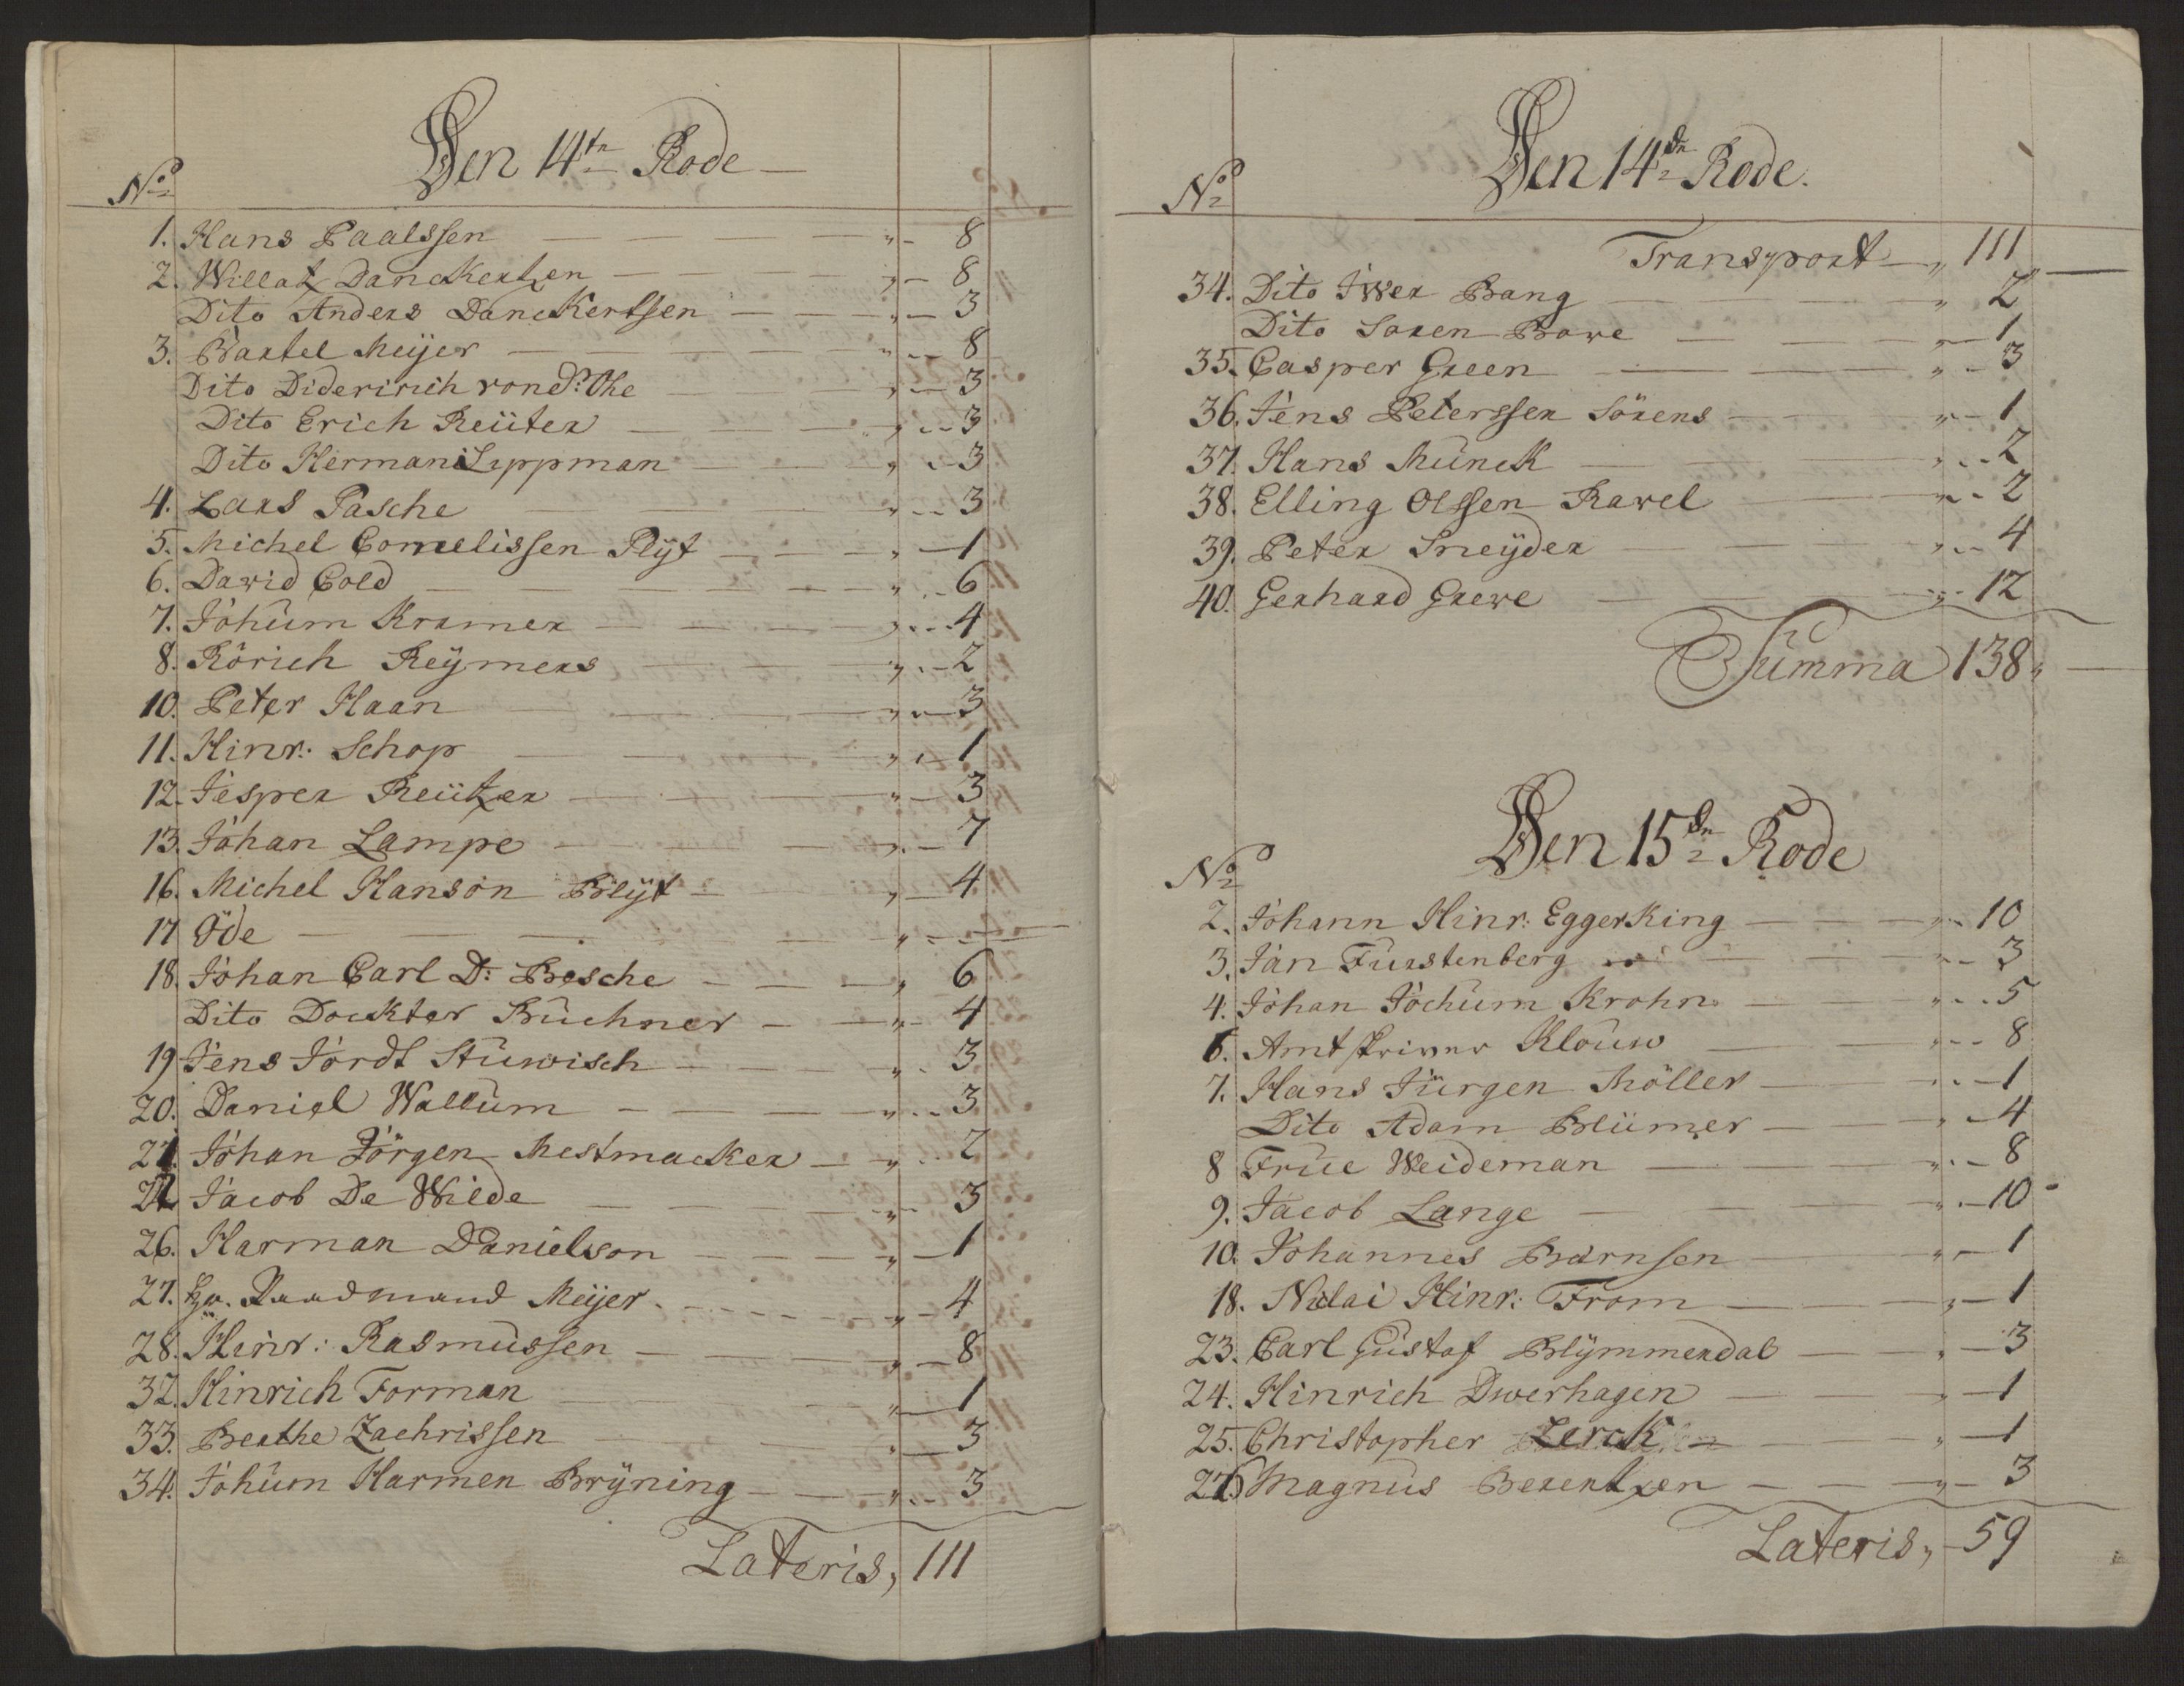 Den 14tn Rode
No
1. Hans Paalssen 8
2. Willatz Danckertzen 8
Dito Anders Danckertssen 3
3. Bartel Meÿer 8
Dito Dideririch von d: Ohe 3
Dito Erich Reüter 3
Dito Herman Lippman 3
4. Lars Pasche 3
5. Michel Cornelissen Plÿt 1
6. David Cold 6
7. Johum Kramer 4
8. Rörich Reÿmers 2
10. Peter Haan 3
11. Hinr: Schop 1
12. Jesper Reützer 3
13. Johan Lampe 7
16. Michel Hanson Blÿt 4
17 Öde
18. Johan Carl D: Besche 6
Dito Dockter Büchner 4
19 Jens Jordt Stuwisch 3
20. Daniel Wallum 3
21. Johan Jörgen Mestmacker 2
22 Jacob De Wilde 3
26. Harman Danielson 1
27. Hr. Raadmand Meijer 4
28. Hinr: Rasmussen 8
32. Hinrich Forman 1
33. Berthe Zachrissen 3
34. Johum Harmen Brÿning 3
Lateris, 111
Den 14dn Rode.
No
Transport 111
34. Dito Iwer Bang 2
Dito Soren Bowe 1
35. Casper Green 3
36. Jens Peterssen Sörens 1
37. Hans Munck 2
38. Elling Olssen Ravel 2
39. Peter Sneÿder 4
40. Gerhard Greve 12
Summa 138
Den 15dn Rode
No
2. Johann Hinr: Eggerking 10
3. Jan Furstenberg 3
4. Johan Jochum Krohn 5
6. Amtskriver Klouw 8
7. Hans Jürgen Möller 1
Dito Adam Blümer 4
8 Frue Weideman 8
9. Jacob Lange 10
10. Johannes Barnsen 1
18. Nicolai Hinr: From 1
23. Carl Gustaf Blÿmmendal 3
24. Hinrich Dwerhagen 1
25. Christopher Lerck 1
Magnus Berentzen 3
Lateris, 59